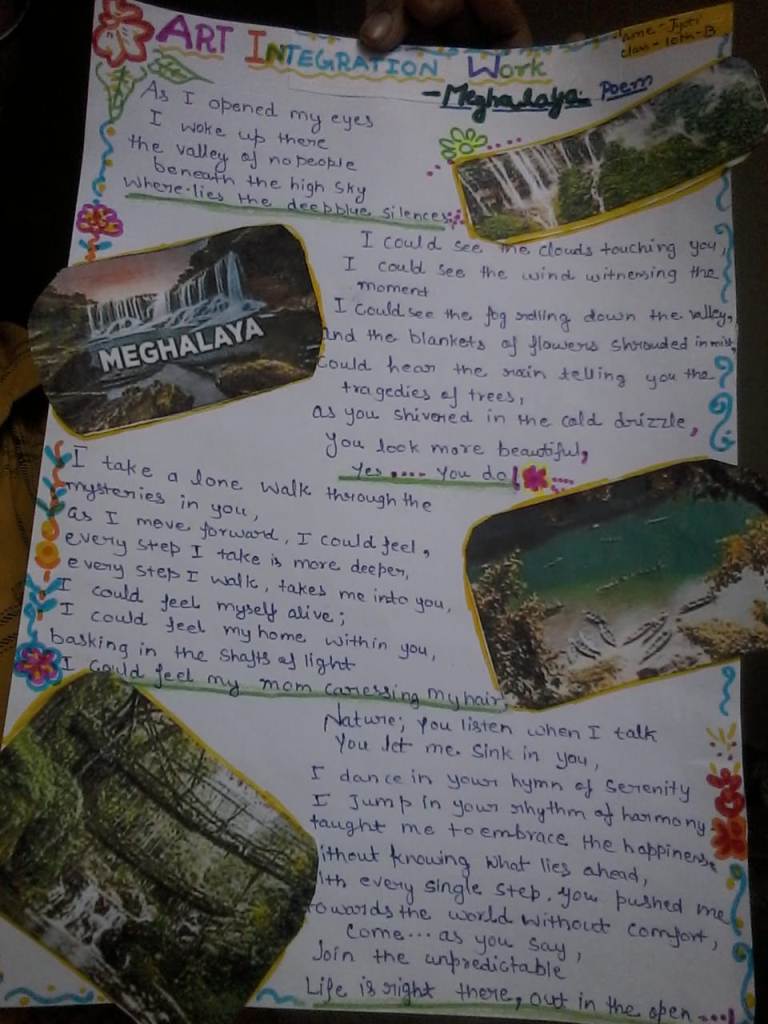 ART INTEGRATION WORK
Name - Jyoti
class - 10th - B
- Meghalaya Poem
As I opened my eyes
I woke up there
the valley of no people
beneath the high sky
where lies the deep blue silences
I could see the clouds touching you,
I could see the wind witnessing the
moment
I could see the fog rolling down the valley,
and the blankets of flowers shrouded in mist,
could hear the rain telling you the
tragedies of trees,
as you shivered in the cold drizzle,
you look more beautiful,
Yes .... You do!
MEGHALAYA
I take a lone walk through the
mysteries in you,
as I move forward, I could feel,
every step I take is more deeper,
every step I walk, takes me into you,
I could feel myself alive;
I could feel my home within you,
basking in the shafts of light
I could feel my mom caressing my hair,
Nature; you listen when I talk
You let me sink in you,
I dance in your hymn of serenity
I Jump in your rhythm of harmony
taught me to embrace the happiness,
ithout knowing what lies ahead,
ith every single step, you pushed me
towards the world without comfort,
Come... as you say,
Join the unpredictable
Life is right there, out in the open ...!